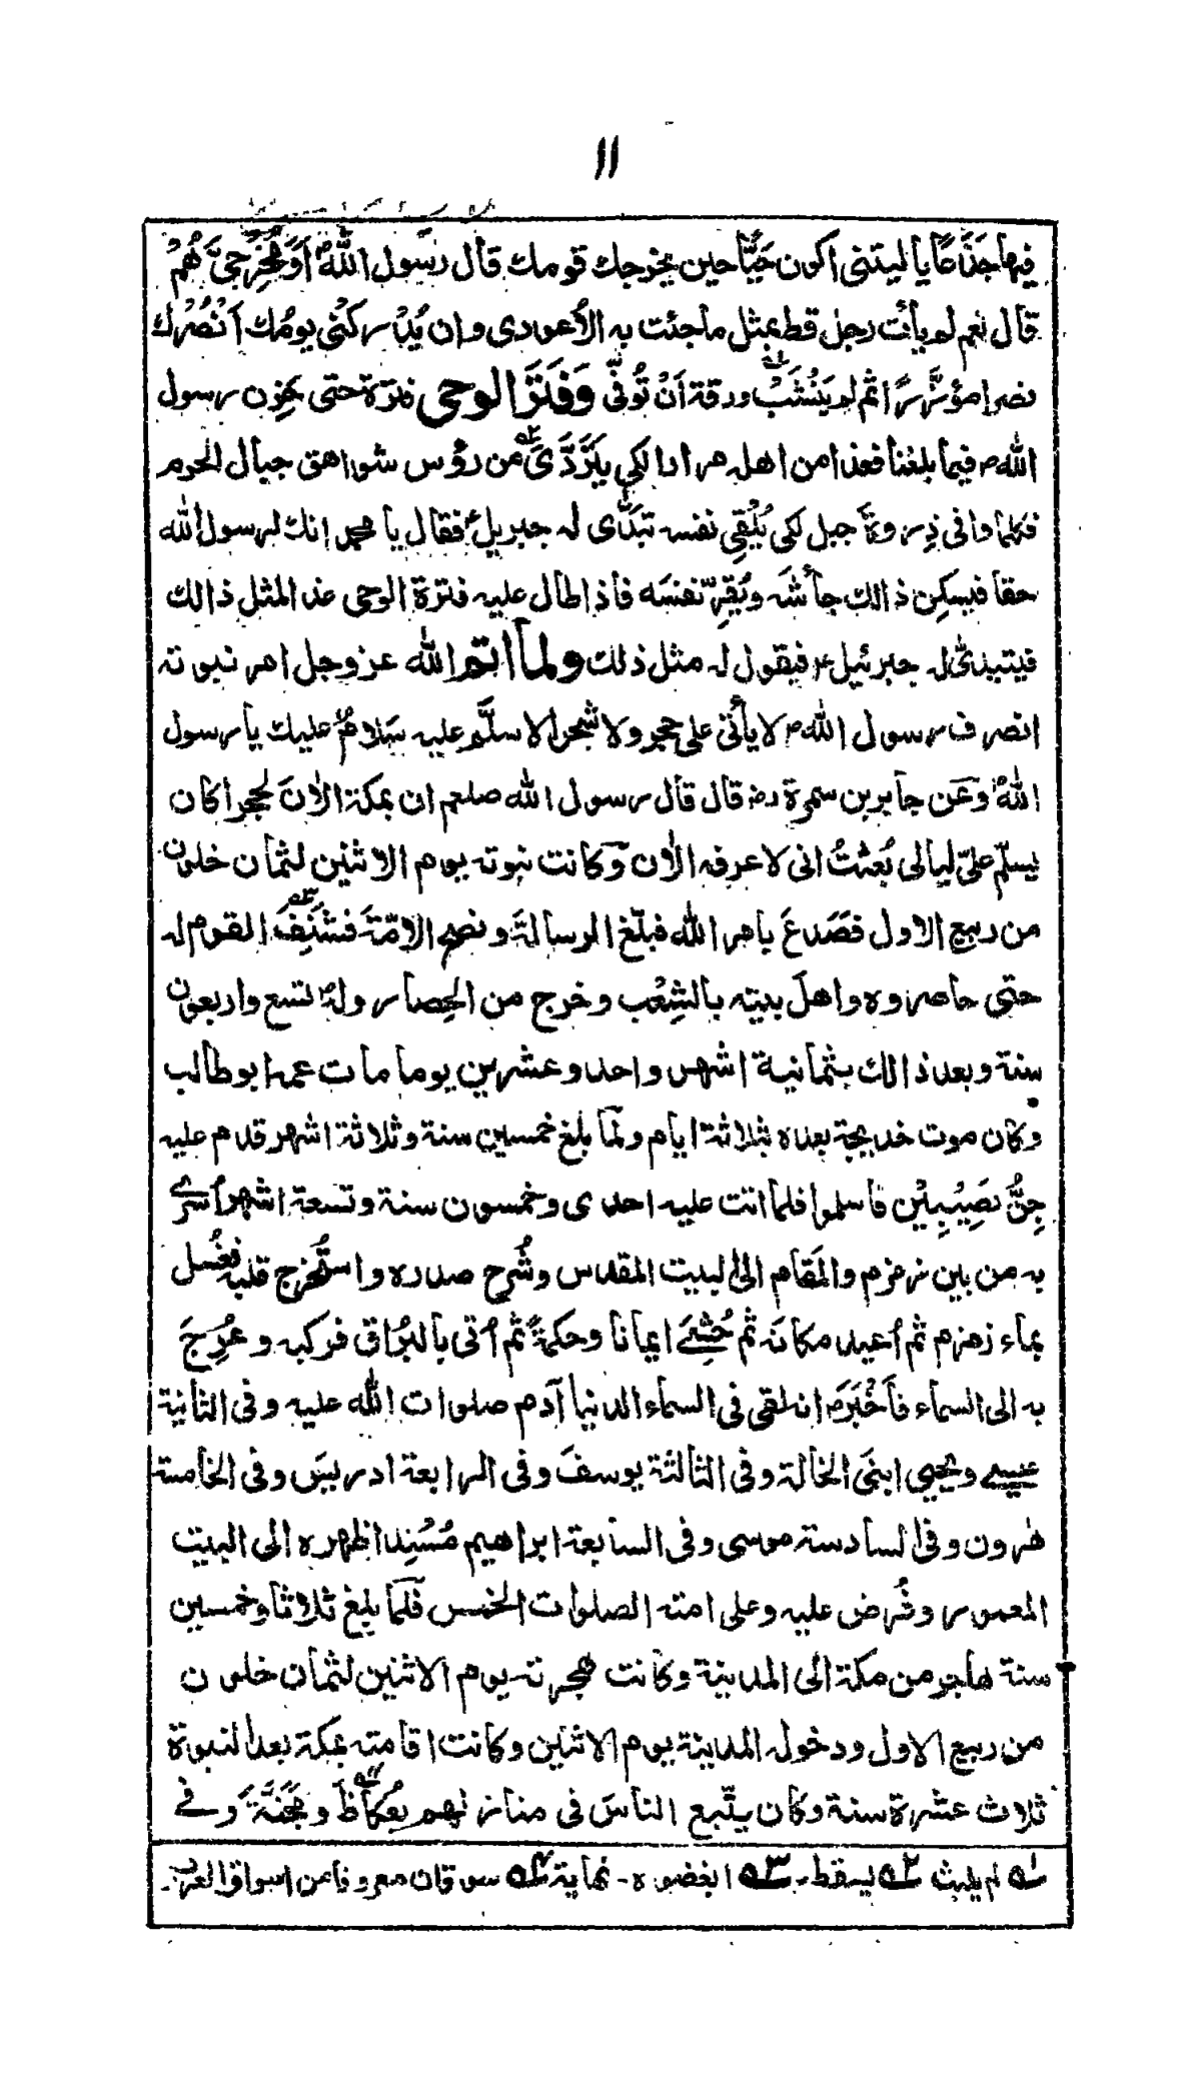 ۱۱
فيها جَذَعًا يا ليتنى اكون حَيًّا حين يخرجك قومك قال رسول اللهؐ اَوَمُخرِجِىَّ هُمْ
قال نعم لم يأت رجل قط بمثل ما جئت به الا عودى وان يُدْركنى يومُك اَنْصُرْك
نصرا مؤزَّرًا ثم لم يَنْشَبْ ورقة اَنْ تُوُفّى وَفَتَرَ الوحى فترة حتى حَزِن رسول
اللهؐ فيما بلغنا فغدا من اهله مرارا لكى يَتَرَدَّى من رؤس شواهق جبال الحرم
فكلما وافى ذِروة جبل لكى يُلْقِى نفسه تبدّى له جبريلؑ فقال يا محمد انك لرسول الله
حقا فيسكن ذالك جأشَه وتَقِرّ نفسَه فاذا طال عليه فترة الوحى غدا لمثل ذالك
فيتبدّى له جبرئيلؑ فيقول له مثل ذلك ولما اتم الله عز وجل امر نبوته
انصرف رسول اللهؐ لا يأتى على حجر ولا شجر الا سلَّم عليه سَلامٌ عليك يا رسول
اللهؐ وعَن جابر بن سمرة رضـ قال قال رسول الله صلعم ان بمكة الاٰن لحجرا كان
يسلّم علىّ ليالى بُعثتُ انى لا عرفه الاٰن وَكانت نبوته يوم الاثنين لثمان خلون
من ربيع الاول فصَدعَ بامر الله فبلّغ الرسالة ونصح الامّة فشَنِفَ القوم له
حتى حاصروه واهلَ بيته بالشِعْب وخرج من الحِصار ولهؐ تسع واربعون
سنة وبعد ذالك بثمانية اشهر واحد وعشرين يوما مات عمه ابو طالب
وكان موت خديجة بعده بثلاثة ايام ولمّا بلغ خمسين سنة وثلاثة اشهر قدم عليه
جِنُّ نصِيْبِيْن فاسلموا فلما اتت عليه احدى وخمسون سنة وتسعة اشهر اُسرِى
به من بين زمزم والمَقام الى البيت المقدس وشُرِح صدره واستُخرج قلبه فغُسل
بماء زمزم ثم اُعيد مكانَه ثم حُشِىَ ايمانا وحكمةً ثم اُتى بالبُراق فركبه وعُرِجَ
به الى السماء فاَخْبَرَ انه لقى فى السماء الدنيا اٰدم صلوات الله عليه وفى الثانية
عيسى ويحيى ابنَى الخالة وفى الثالثة يوسفَ وفى الرابعة ادريسَ وفى الخامسة
هٰرون وفى السادسة موسى وفى السابعة ابراهيم مُسْنِدا ظهره الى البيت
المعمور وفُرض عليه وعلى امته الصلوات الخمس فَلَمّا بلغ ثلاثا وخمسين
سنة هاجر من مكة الى المدينة وكانت هجرته يوم الاثنين لثمان خلون
من ربيع الاول ودخوله المدينة يوم الاثنين وكانت اقامته بمكة بعد النبوة
ثلاث عشرة سنة وكان يتّبع الناسَ فى منازلهم بعُكاظَ ومَجَنَّةَ وفى
ـه١ لم يلبث ـه٢ يسقط۔ ـه٣ ابغضوه۔ نهاية ـه٤ سوقان معروفان من اسواق العرب۔